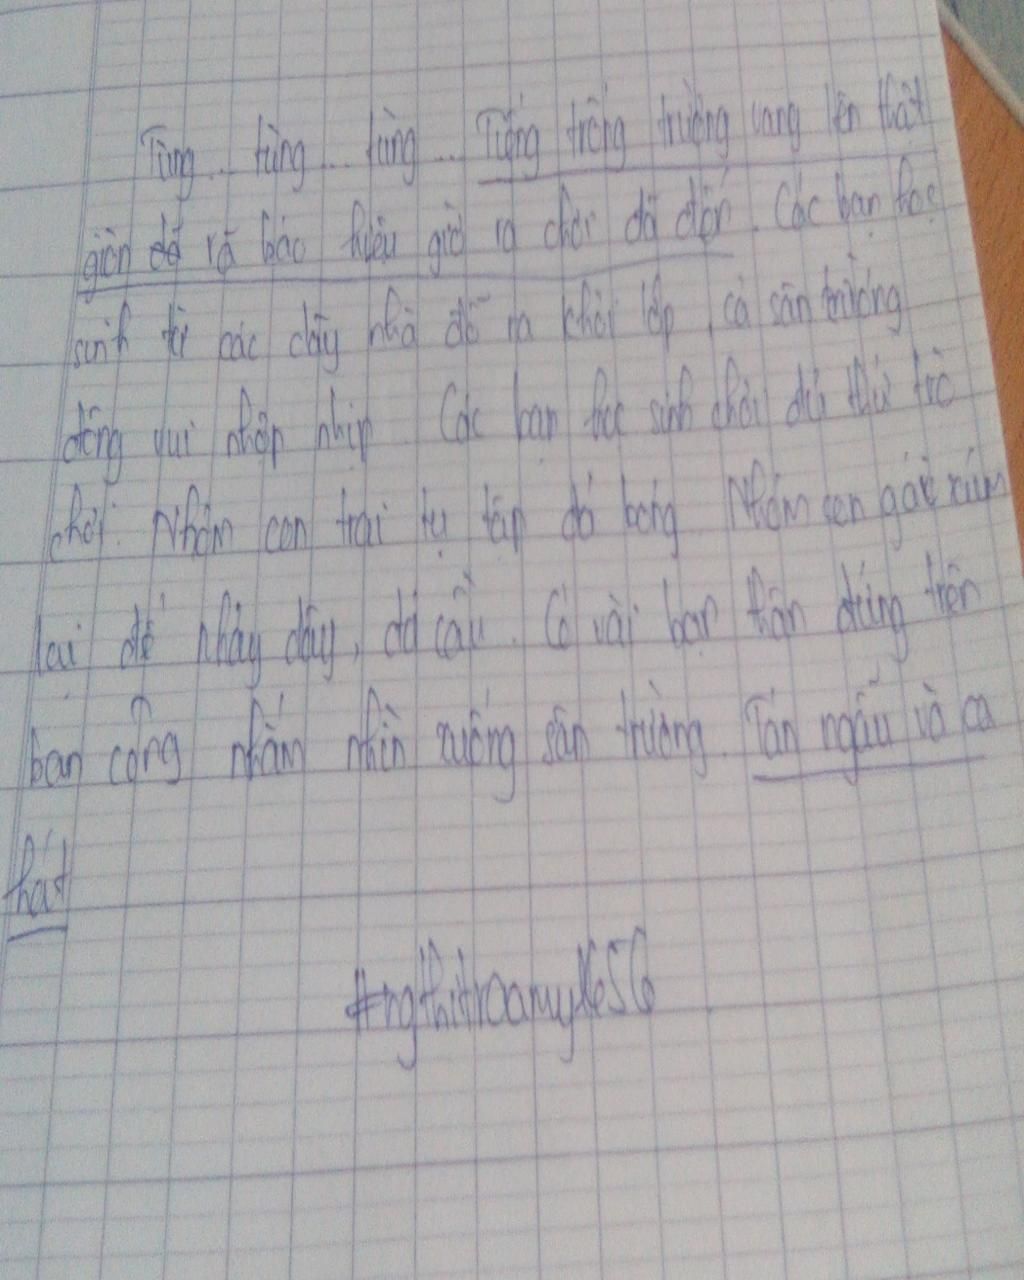 Tùng... tùng... tùng... Tiếng trống trường vang lên thật
giòn rã báo hiệu giờ ra chơi đã đến. Các bạn học
sinh từ các dãy nhà đổ ra khỏi lớp, cả sân trường
đông vui nhộn nhịp. Các bạn học sinh chơi đủ thứ trò
chơi. Nhóm con trai tụ tập đá bóng. Nhóm con gái xúm
lại để nhảy dây, đá cầu. Có vài bạn thân đứng trên
ban công nhắm nhìn xuống sân trường. Tán ngẫu và ca
hát